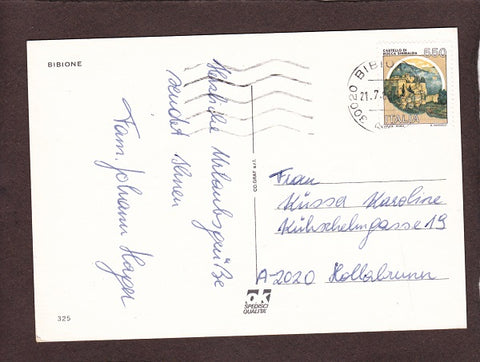 BIBIONE
Herzliche Urlaubsgrüße
sendet Ihnen
Fam. Johann Hager
325
CO.GRAF s.r.l.
OK
SPEDISCI
QUALITÀ
CASTELLO DI
ROCCA SINIBALDA
550
ITALIA
30020 BIBIO
21.7.
Frau
Kussa Karoline
Kühschelmgasse 19
A-2020 Hollabrunn